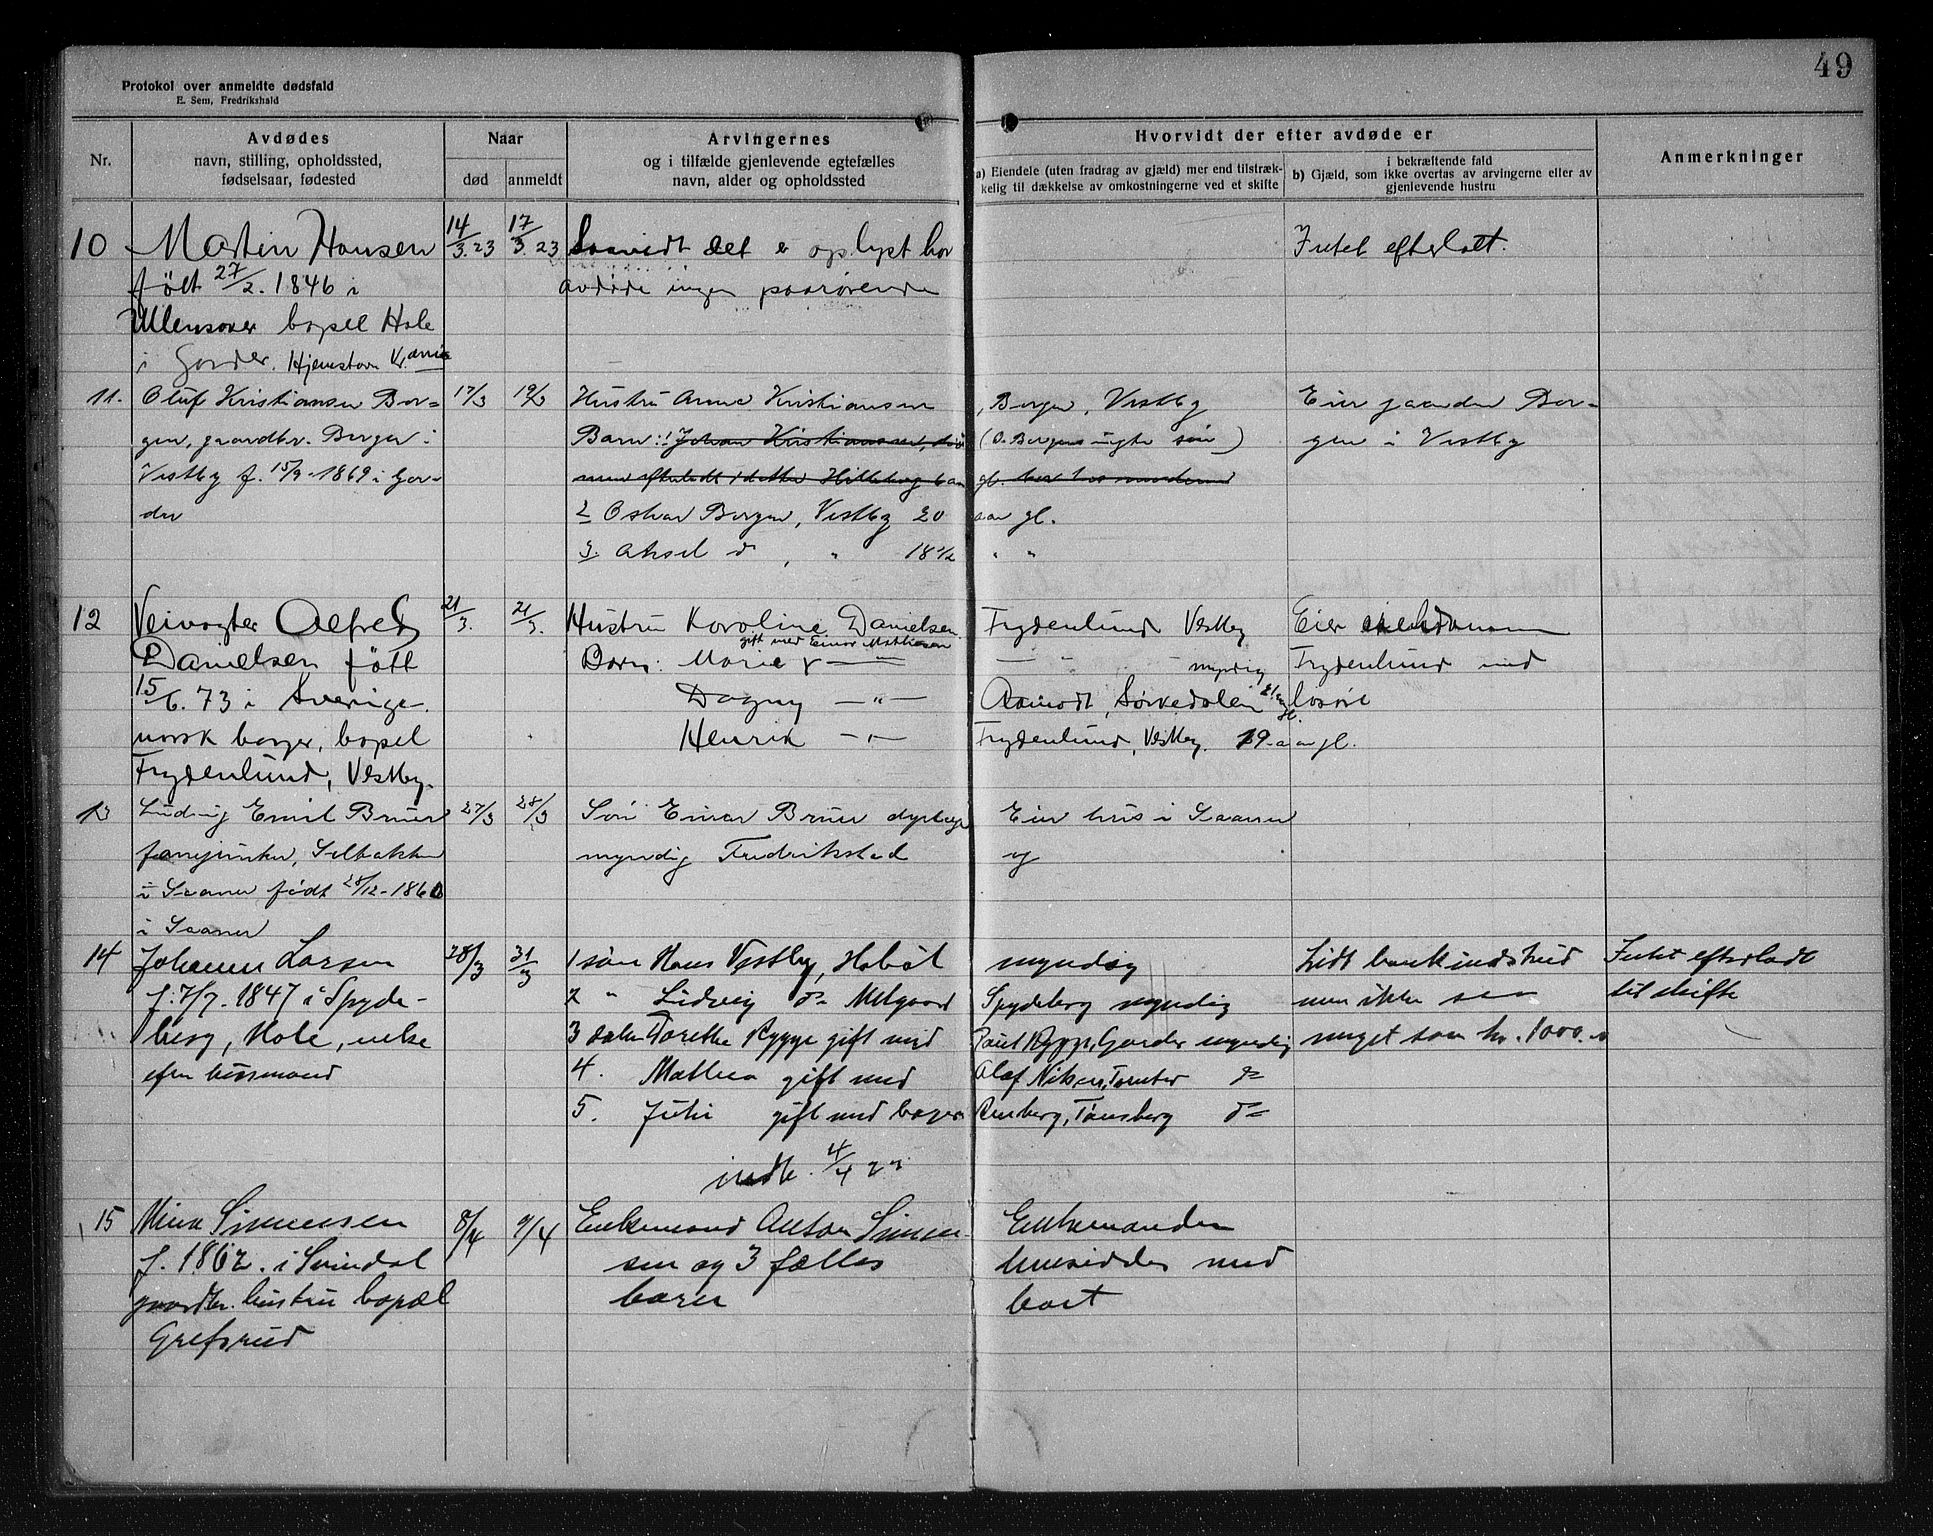 49
Protokol over anmeldte dødsfald
E. Sem, Fredrikshald
Nr.
Avdødes
navn, stilling, opholdssted,
fødselsaar, fødested
Naar
død
anmeldt
Arvingernes
og i tilfælde gjenlevende egtefælles
navn, alder og opholdssted
Hvorvidt der efter avdøde er
a) Eiendele (uten fradrag av gjæld) mer end tilstræk-
kelig til dækkelse av omkostningerne ved et skifte
i bekræftende fald
b) Gjæld, som ikke overtas av arvingerne eller av
gjenlevende hustru
Anmerkninger
10 Martin Hansen 14/3.23 17/3.23 Saavidt det er oplyst har Intet efterlatt.
født 27/2. 1846 i avdøde ingen paarørende
Ullensaker bopel Hole
i Garder. Hjemstavn Kr.ania
11. Oluf Kristiansen Bor= 17/3 19/3 Hustru Anna Kristiansen , Borgen, Vestby Eier gaarden Bor-
gen, gaardbr. Borgen i Barn: 1 Johan Kristiansen, (O. Borgens uegte søn) gen i Vestby
Vestby f. 15/9-1869 i Gar-
der 2 Oskar Borgen, Vestby 20 aar gl.
3. Aksel d , " 18 1/2 " "
12 Veivogter Alfred 21/3. 21/3. Hustru Karoline Danielsen Frydenlund Vestby Eier eiendommen
gift med Einar Mathiesen
Danielsen født Barn: Marie — " — — " — myndig Frydenlund med
15/6. 73 i Sverige. Dagny — " — Aamodt, Sørkedalen 21 aar gl. løsøre
norsk borger, bopel Henrik — " — Frydenlund, Vestby. 19 aar gl.
Frydenlund, Vestby.
13 Ludvig Emil Bruer 27/3 28/3 Søn Einar Bruer Eier hus i Saaner
fanejunker, Solbakken myndig Fredrikstad og
i Saaner født 28/12-1860
i Saaner
14 Johanne Larsen 28/3 31/3 1 søn Hans Vestby, Hobøl myndig Lidt bankindskud Intet efterladt
f. 7/7. 1847 i Spyde- 2 " Ludvig do Melgaard Spydeberg myndig men ikke saa til skifte
berg, Hole, enke 3 datter Torethe Rygge gift med Paul Rygge, Garder myndig meget som kr. 1000.
efter husmand 4. Mathea gift med Olaf Nilsen, Tomter do
5. Juli gift med bager Ramberg, Tønsberg do
indb. 4/4 23
15 Mina Simensen 8/4 9/4 Enkemand Anton Simen- Enkemanden
f. 1862. i Svindal sen og 3 fælles hensidder med
gaardbr. hustru bopæl barn boet
Grefsrud